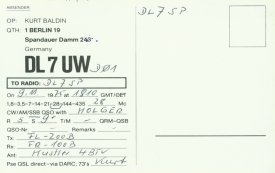 ABSENDER
DL7SP
OP: KURT BALDIN
QTH: 1 BERLIN 19
Spandauer Damm
Germany
DL 7 UW DØ1
TO RADIO: DL7SP
On 9. 1975 at 1810 GMT/
1,8-3,5-7-14-21-28-144-435 28 Mc
CW/AM/SSB QSO with HOLGER
R 5 S 9 T/M - QRM-QSB
QSO-Nr - Remarks -
Tx: FL-200B
Rx: FR-100B
Ant: 4BTV
Pse QSL direct - via DARC, 73's Kurt